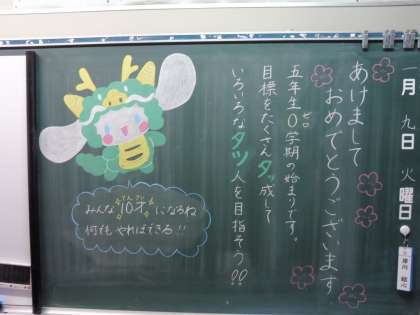 一月九日火曜日
あけまして
おめでとうございます
五年生0学期の始まりです。
ゼロ
目標をたくさんタッ成して
いろいろなタツ人を目指そう!!
みんな10才になるね
何でもやればできる!!